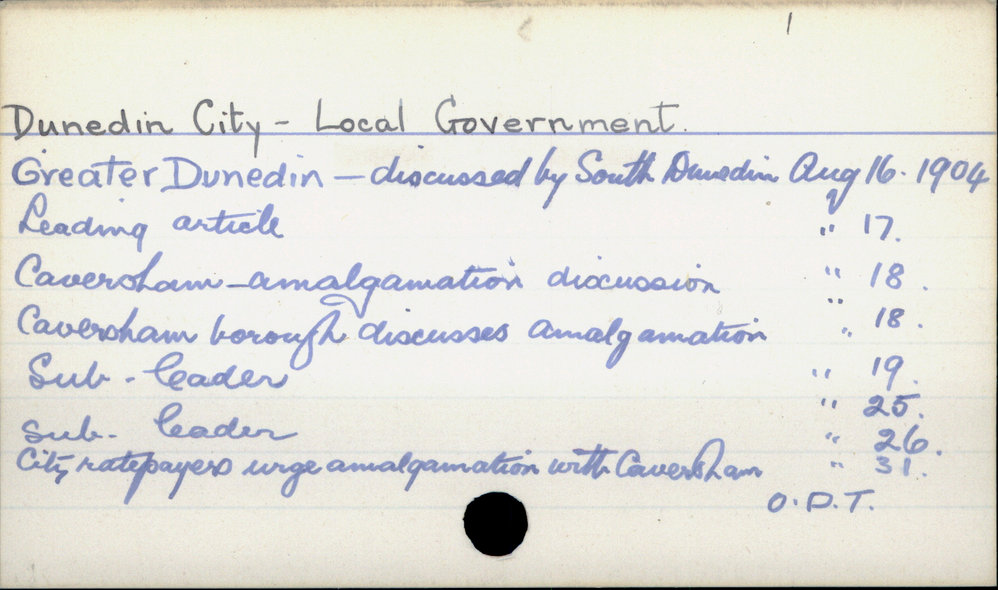 1
Dunedin City - Local Government.
Greater Dunedin - discussed by South Dunedin Aug 16. 1904
Leading article " 17.
Caversham - amalgamation discussion " 18.
Caversham borough discusses amalgamation " 18.
Sub-leader " 19.
" 25.
Sub-leader " 26.
City ratepayers urge amalgamation with Caversham " 31.
O.D.T.